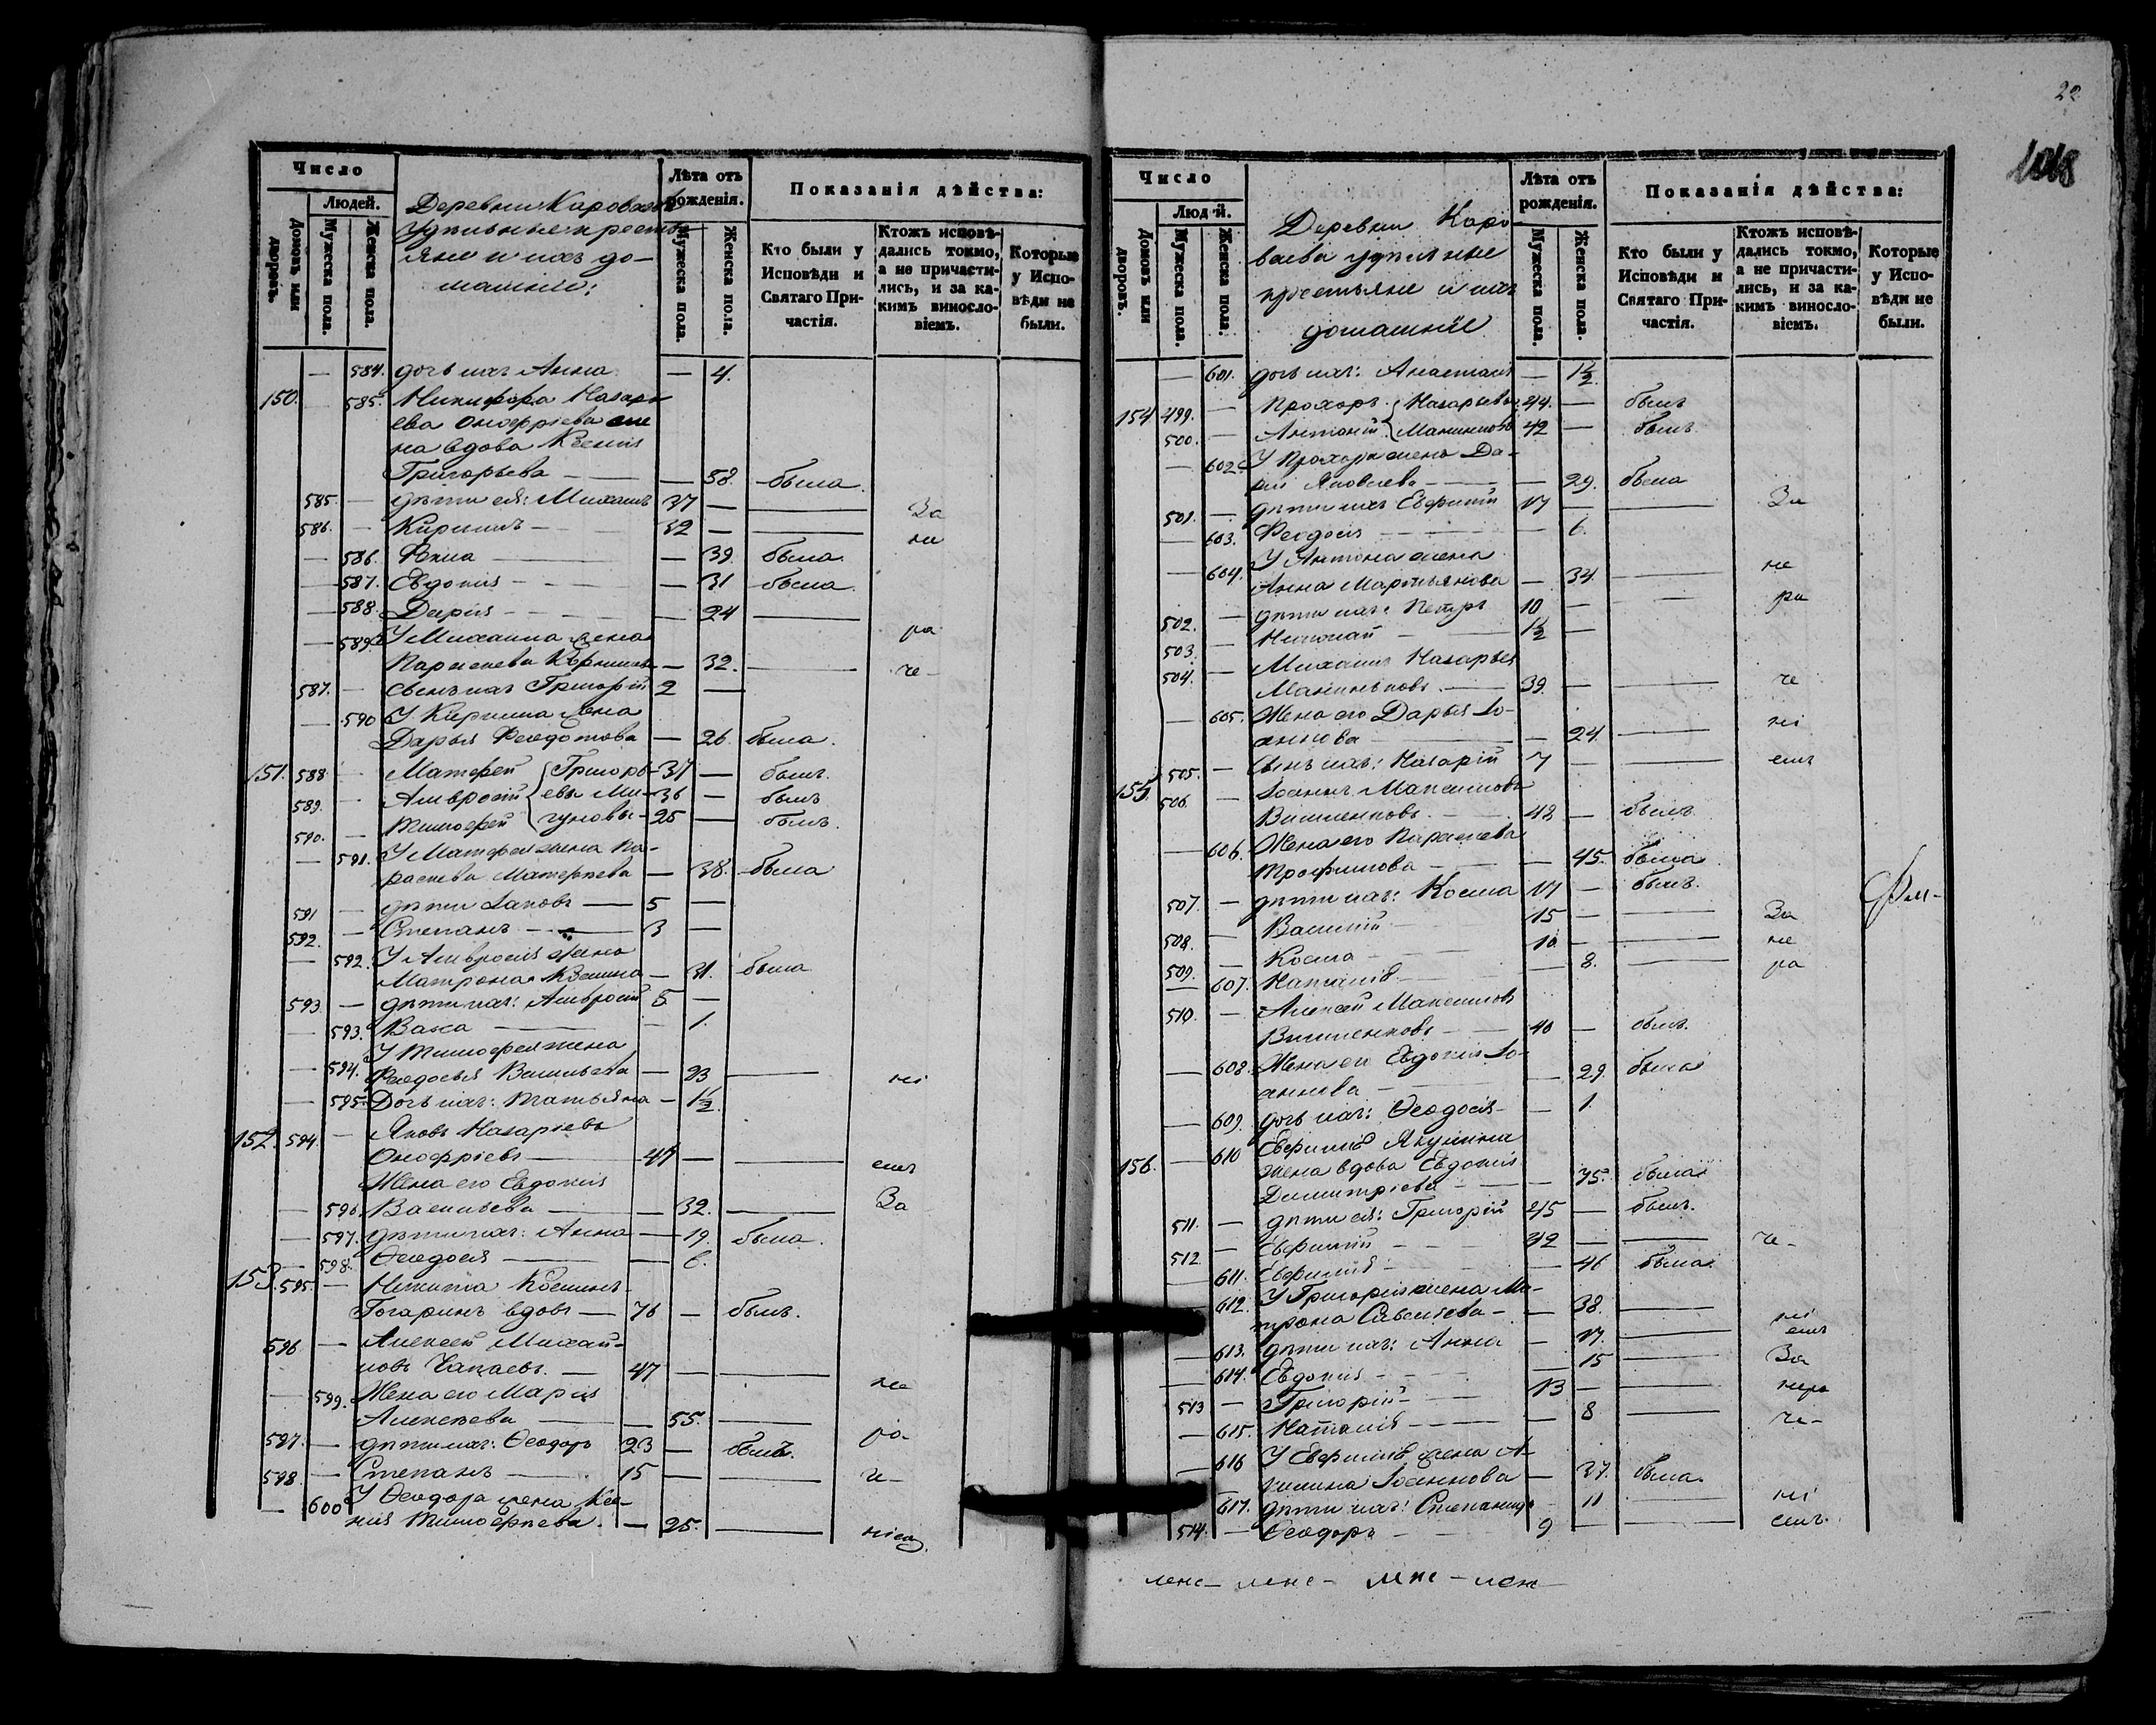 Число
Людей.
Домовъ или дворовъ.
Мужеска пола.
Женска пола.
Деревни Кароваева
удѣльные кресть-
яне и ихъ до-
машніе:
Лѣта отъ рожденія.
Мужеска пола.
Женска пола.
Показанія дѣйства:
Кто были у Исповѣди и Святаго Причастія.
Ктожъ исповѣдались токмо, а не причастились, и за какимъ винословіемъ.
Которые у Исповѣди не были.
— 584. дочь ихъ Анна — 4.
150. — 585. Никифора Назарь-
ева Онофріева же-
на вдова Ксенія
Григорьева — — 58. была
585. — дѣти ея: Михаилъ 37 — — За
586. — Кирилъ — 32 — — не
— 586. Фекла — — 39. была
— 587. Евдокія — — 31 была
— 588. Дарія — — 24 —
— 589. У Михаила жена ра
Параскева Корнилова — 32. — че-
587. — сынъ ихъ Григорій 2 —
— 590 У Кирила жена
Дарья Феодотова — 26. была.
151. 588 — Матфей Григорь- 37 — былъ.
589. — Амвросій евы Ми- 36 — былъ
590. — Тимофей гуновы 25 — былъ.
— 591. У Матфея жена Па-
раскева Матфѣева — 38. была
591 — дѣти Іаковъ — 5 —
592. — Степанъ — 3 —
— 592. У Амвросія жена
Матрона Козмина — 31. была
593. — дѣти ихъ: Амвросій 5 —
— 593. Васса — — 1.
У Тимофея жена
— 594. Феодосья Васильева — 23 — ні
— 595. Дочь ихъ: Татьяна — 1½
152. 594. — Яковъ Назаріевъ
Онофріевъ — 47 — — емъ
Жена его Евдокія
— 596. Васильева — — 32. — За
— 597. дѣти ихъ: Анна — 19. была.
— 598. Ѳеодосія — — 6.
153. 595. — Никита Козминъ
Гогаринъ вдовъ — 76 — былъ.
596 — Алексей Михай-
ловъ Чапаевъ. — 47 — —
— 599. Жена его Марія не
Алексѣева — — 55. —
597. — дѣти ихъ: Ѳеодоръ 23 — былъ. ра-
598 — Степанъ — 15 — — че-
— 600 У Ѳеодора жена Ксе-
нія Тимофѣева. — 25. — ніемъ
22
1018
Число
Людей.
Домовъ или дворовъ.
Мужеска пола.
Женска пола.
Деревни Каро-
ваева удѣльные
крестьяне и ихъ
домашніе
Лѣта отъ рожденія.
Мужеска пола.
Женска пола.
Показанія дѣйства:
Кто были у Исповѣди и Святаго Причастія.
Ктожъ исповѣдались токмо, а не причастились, и за какимъ винословіемъ.
Которые у Исповѣди не были.
— 601. дочь ихъ: Анастасія — 1½
154 499. — Прохоръ Назарьевы 44. — былъ
500. — Антоній 42 — былъ
— 602. У Прохора жена Да-
рія Яковлева — — 29. была
501. — дѣти ихъ Евфимій 17 — — За
— 603. Феодосія — — 6.
— 604. У Антона жена
Анна Мартьянова — 34. — не
502. — дѣти ихъ: Петръ 10 — — ра
503. — Николай — 1½ —
504. — Михаилъ Назарьев
39. — — че
— 605. Жена его Дарья Іо-
аннова — — 24. — ні
505. — Сынъ ихъ: Назарій 7 — — емъ
155. 506. — Іоаннъ Максимовъ
Вишенковъ. — 48 — былъ
— 606. Жена его Параскева
Трофимова — — 45. была
507. — дѣти ихъ: Косма 17 — былъ.
508. — Василій 15 — — За
509. — Косма 10 — — не
— 607. Наталія — — 8. — ра
510. — Алексей Максимовъ
Вишенковъ — 40 — былъ.
— 608. Жена его Евдокія Іо-
аннова — — 29. была
— 609. дочь ихъ: Ѳеодосія — 1.
156. — 610 Евфимія Якунина
жена вдова Евдокія
Димитріева — — 75. была
511. — дѣти ея: Григорій 45 — былъ.
512 — Евфимій 42 — — че-
— 611. Евфимія — — 46 была
— 612. У Григорія жена Ма-
трона Савельева — — 38. — ні
— 613. дѣти ихъ: Анна — 17. — емъ
— 614. Евдокія — — 15 — За
513 — Григорій — 13 — — нера
— 615. Наталія — — 8 — че-
— 616 У Евфимія жена А-
килина Іоаннова — 37. была.
— 617. дѣти ихъ: Степанида — 11 — ні
514. — Ѳеодоръ — 9 — — емъ.